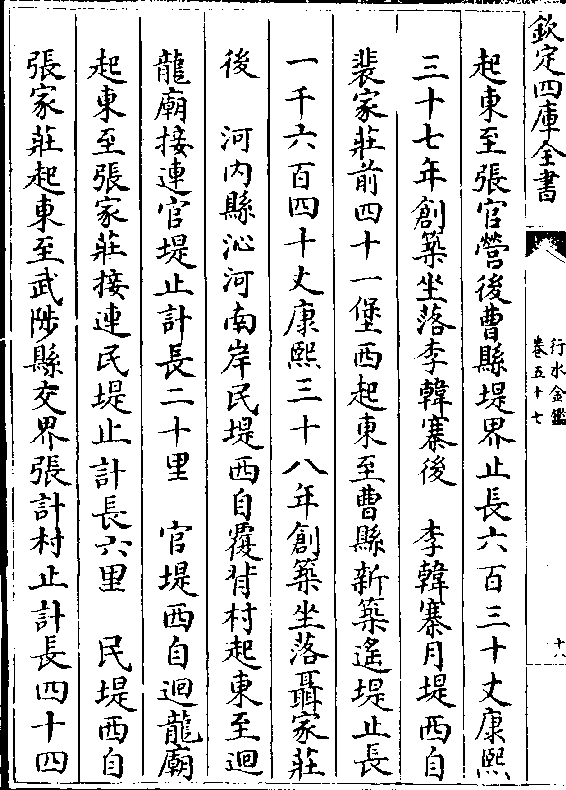 欽定四庫全書
行水金鑑
卷五十七
十八
起東至張官營後曹縣堤界止長六百三十丈康熙
三十七年創築坐落李韓寨後　李韓寨月堤西自
裴家莊前四十一堡西起東至曹縣新築遙堤止長
一千六百四十丈康熙三十八年創築坐落聶家莊
後　河内縣沁河南岸民堤西自覆背村起東至迴
龍廟接連官堤止計長二十里　官堤西自迴龍廟
起東至張家莊接連民堤止計長六里　民堤西自
張家莊起東至武陟縣交界張計村止計長四十四